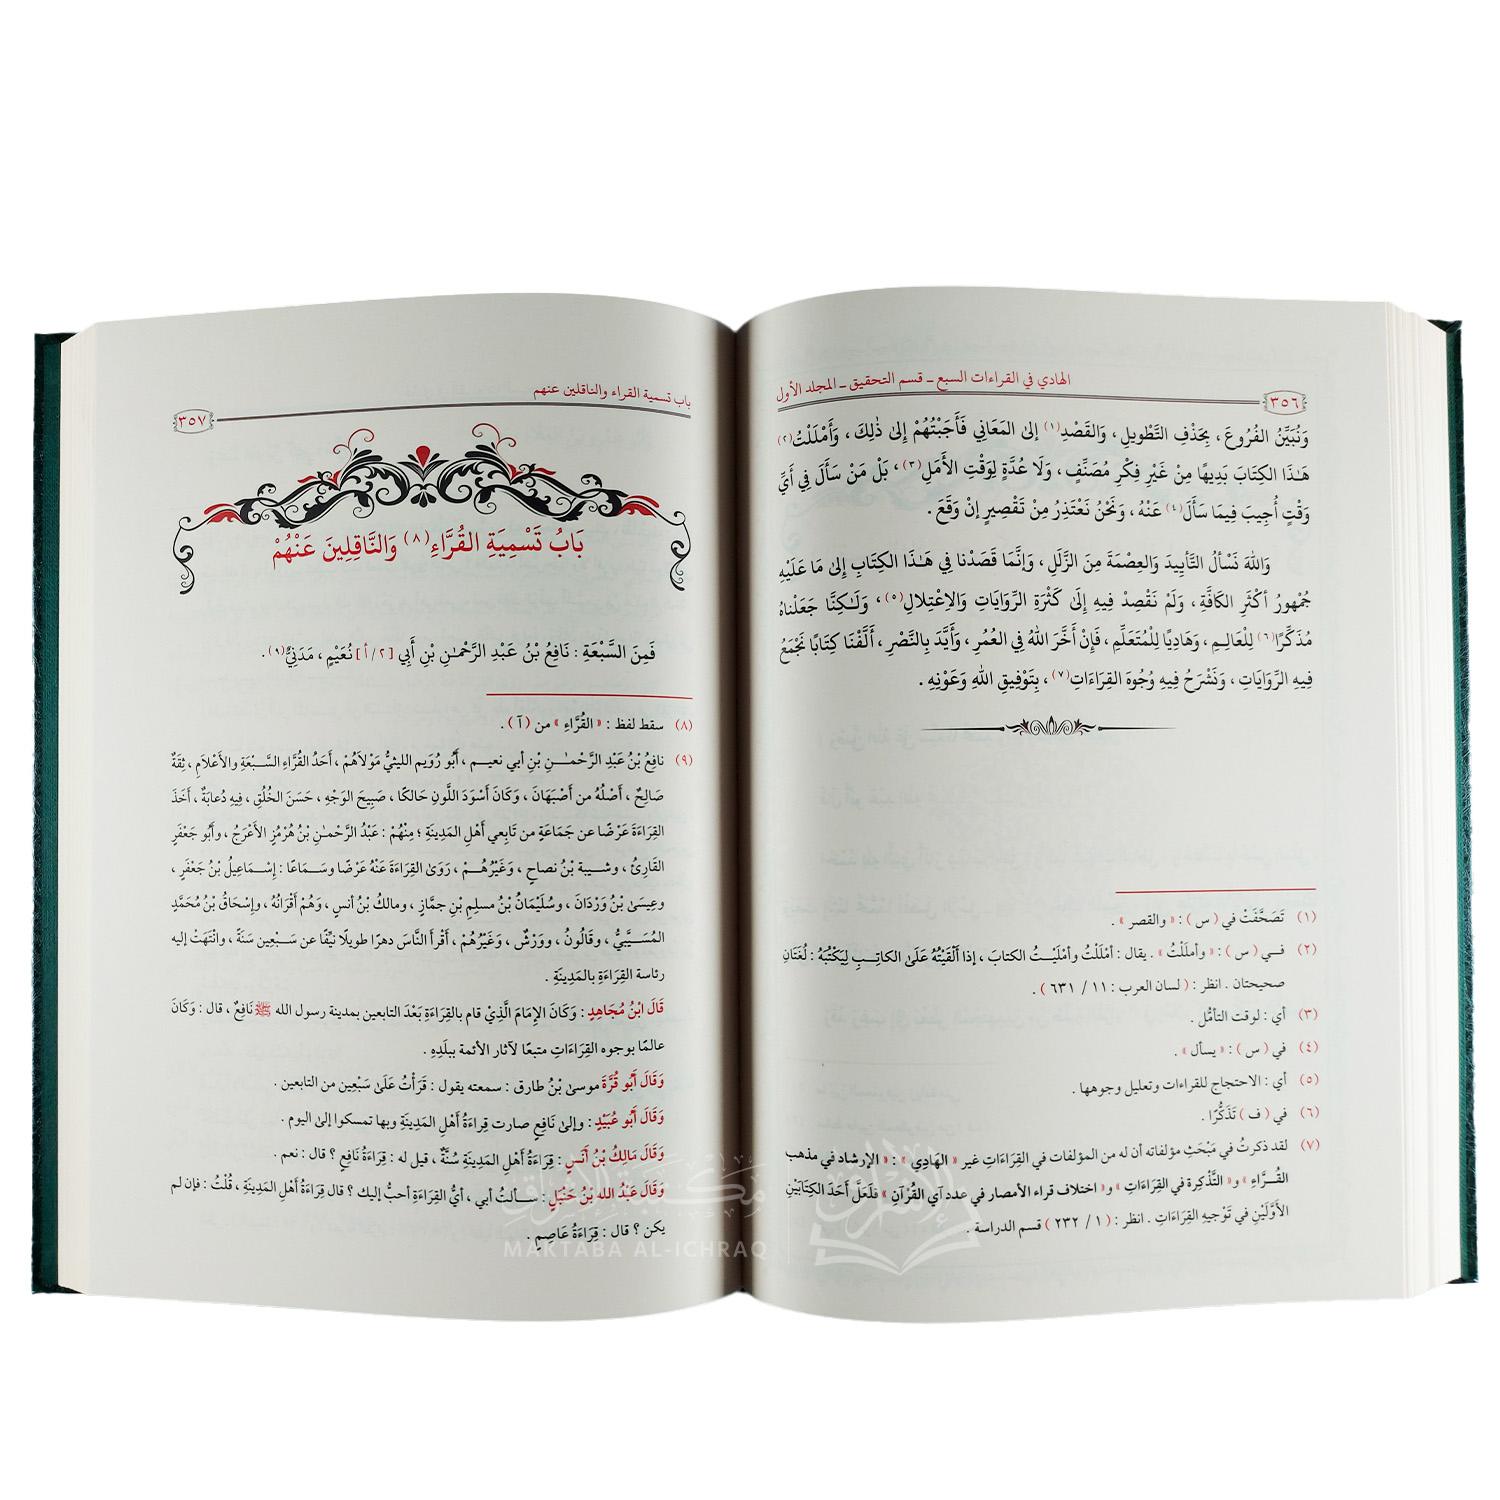 الهادي في القراءات السبع ـ قسم التحقيق ـ المجلد الأول
٣٥٦
وَنُبَيِّنُ الفُرُوعَ ، بِحَذْفِ التَّطْوِيلِ ، وَالقَصْدِ(١) إلىٰ المَعَانِي فَأَجَبْتُهُمْ إِلىٰ ذٰلِكَ ، وَأَمْلَلْتُ(٢)
هَـٰذَا الكِتَابَ بَدِيهًا مِنْ غَيْرِ فِكْرِ مُصَنِّفٍ ، وَلَا عُدَّةٍ لِوَقْتِ الأَمَلِ(٣) ، بَلْ مَنْ سَأَلَ فِي أَيِّ
وَقْتٍ أُجِيبَ فِيمَا سَأَلَ(٤) عَنْهُ ، وَنَحْنُ نَعْتَذِرُ مِنْ تَقْصِيرٍ إنْ وَقَعَ .
وَاللهَ نَسْأَلُ التَّأيِيدَ وَالعِصْمَةَ مِنَ الزَّلَلِ ، وَإنَّمَا قَصَدْنا فِي هَـٰذَا الكِتَابِ إلىٰ مَا عَلَيْهِ
جُمْهُورُ أكْثَرِ الكَافَّةِ ، وَلَمْ نَقْصِدْ فِيهِ إِلىٰ كَثْرَةِ الرِّوَايَاتِ وَالاِعْتِلالِ(٥) ، وَلَـٰكِنَّا جَعَلْناهُ
مُذَكِّرًا(٦) لِلْعَالِمِ ، وَهَادِيًا لِلْمُتَعَلِّمِ ، فَإنْ أَخَّرَ اللهُ فِي العُمُرِ ، وَأَيَّدَ بِالنَّصْرِ ، أَلَّفْنَا كِتَابًا نَجْمَعُ
فِيهِ الرِّوَايَاتِ ، وَنَشْرَحُ فِيهِ وُجُوهَ القِرَاءَاتِ(٧) ، بِتَوْفِيقِ اللهِ وَعَوْنِهِ .
(١) تَصَحَّفَتْ في ( س ) : « والقصر » .
(٢) فـي ( س ) : « وأملَلْتُ » . يقال : أمْلَلْتُ وأمْلَيْتُ الكتابَ ، إذا ألْقَيْتُهُ عَلَىٰ الكاتِـبِ لِيَكْتُبَهُ : لُغَتَانِ
صحيحتان . انظر : ( لسان العرب : ١١ / ٦٣١ ) .
(٣) أي : لوقت التأمُّل .
(٤) في ( س ) : « يسأل » .
(٥) أي : الاحتجاج للقراءات وتعليل وجوهها .
(٦) في ( ف ) تَذَكُّرًا .
(٧) لقد ذكرتُ في مَبْحَثِ مؤلفاته أن له من المؤلفات في القِرَاءَاتِ غير « الهَادِي » : « الإرشاد في مذهب
القُـرَّاءِ » و« التَّذْكِرة في القِرَاءَاتِ » و« اختلاف قراء الأمصار في عدد آي القُرْآنِ » فلَعَلَّ أَحَدَ الكِتَابَيْنِ
الأَوَّلَيْنِ في تَوْجِيهِ القِرَاءَاتِ . انظر : ( ١ / ٢٣٢ ) قسم الدراسة .
باب تسمية القراء والناقلين عنهم
٣٥٧
بَابُ تَسْمِيَةِ القُرَّاءِ(٨) وَالنَّاقِلِينَ عَنْهُمْ
فَمِنَ السَّبْعَةِ : نَافِعُ بْنُ عَبْدِ الرَّحْمٰنِ بْنِ أَبِي [ ٢/ أ ] نُعَيْمٍ ، مَدَنِيٌّ(٩) .
(٨) سقط لفظ : « القُرَّاءِ » من ( آ ) .
(٩) نافِعُ بْنُ عَبْدِ الرَّحْمـٰـنِ بْنِ أبي نعيـم ، أَبُو رُوَيم الليثيُّ مَوْلَاهُمْ ، أَحَدُ القُرَّاءِ السَّـبْعَةِ والأَعْلَامِ ، ثِقَةٌ
صَالِحٌ ، أَصْلُهُ من أَصْبَهَانَ ، وَكَانَ أَسْوَدَ اللَّونِ حَالكًا ، صَبِيحَ الوَجْهِ ، حَسَنَ الخُلُقِ ، فِيهِ دُعابَةٌ ، أَخَذَ
القِرَاءَةَ عَرْضًا عن جَمَاعَةٍ من تَابِعِي أَهْلِ المَدِينَةِ ؛ مِنْهُمْ : عَبْدُ الرَّحْمـٰنِ بْنُ هُرْمُزٍ الأَعْرَجُ ، وأَبُو جَعْفَرٍ
القَارِئُ ، وشيبة بْنُ نصاحٍ ، وَغَيْرُهُـمْ ، رَوَىٰ القِرَاءَةَ عَنْهُ عَرْضًا وسَـمَاعًا : إِسْـمَاعِيلُ بْنُ جَعْفَرٍ ،
وعِيسَىٰ بْنُ وَرْدَانَ ، وسُلَيْمَانُ بْنُ مسلمِ بْنِ جمَّازٍ ، ومالكُ بْنُ أنسٍ ، وَهُمْ أَقْرَانُهُ ، وإسْحَاقُ بْنُ مُحَمَّدٍ
المُسَـيَّبِيُّ ، وقَالُونُ ، ووَرْشٌ ، وَغَيْرُهُمْ ، أَقْرأَ النَّاسَ دهرًا طويلًا نيِّفًا عن سَـبْعِين سَنَةً ، وانْتَهَتْ إليه
رئاسة القِرَاءَةِ بالمَدِينَةِ .
قَالَ ابْنُ مُجَاهِدٍ : وَكَانَ الإِمَامَ الَّذِيْ قام بالقِرَاءَةِ بَعْدَ التابعين بمدينة رسول الله ﷺ نَافِعٌ ، قال : وَكَانَ
عالمًا بوجوه القِرَاءَاتِ متبعًا لآثار الأئمة ببلَدِهِ .
وَقَالَ أَبُو قُرَّةَ موسىٰ بْنُ طارق : سمعته يقول : قَرَأْتُ عَلَىٰ سَبْعِينَ من التابعين .
وَقَالَ أَبُو عُبَيْدٍ : وإلىٰ نَافِعٍ صارت قِراءَةُ أَهْلِ المَدِينَةِ وبها تمسكوا إلىٰ اليوم .
وَقَالَ مَالِكُ بْنُ أَنَسٍ : قِرَاءَةُ أَهْلِ المَدِينَةِ سُنَّةٌ ، قيل له : قِرَاءَةُ نَافِعٍ ؟ قال : نعم .
وَقَالَ عَبْدُ الله بْنُ حَنْبَلٍ : سـألتُ أبي ، أيُّ القِرَاءَةِ أحبُّ إليك ؟ قال قِرَاءَةُ أَهْلِ المَدِينَةِ ، قُلْتُ : فإن لم
يكن ؟ قال : قِرَاءَةُ عَاصِمٍ .
مكتبة الإشراق
MAKTABA AL-ICHRAQ
الإشراق